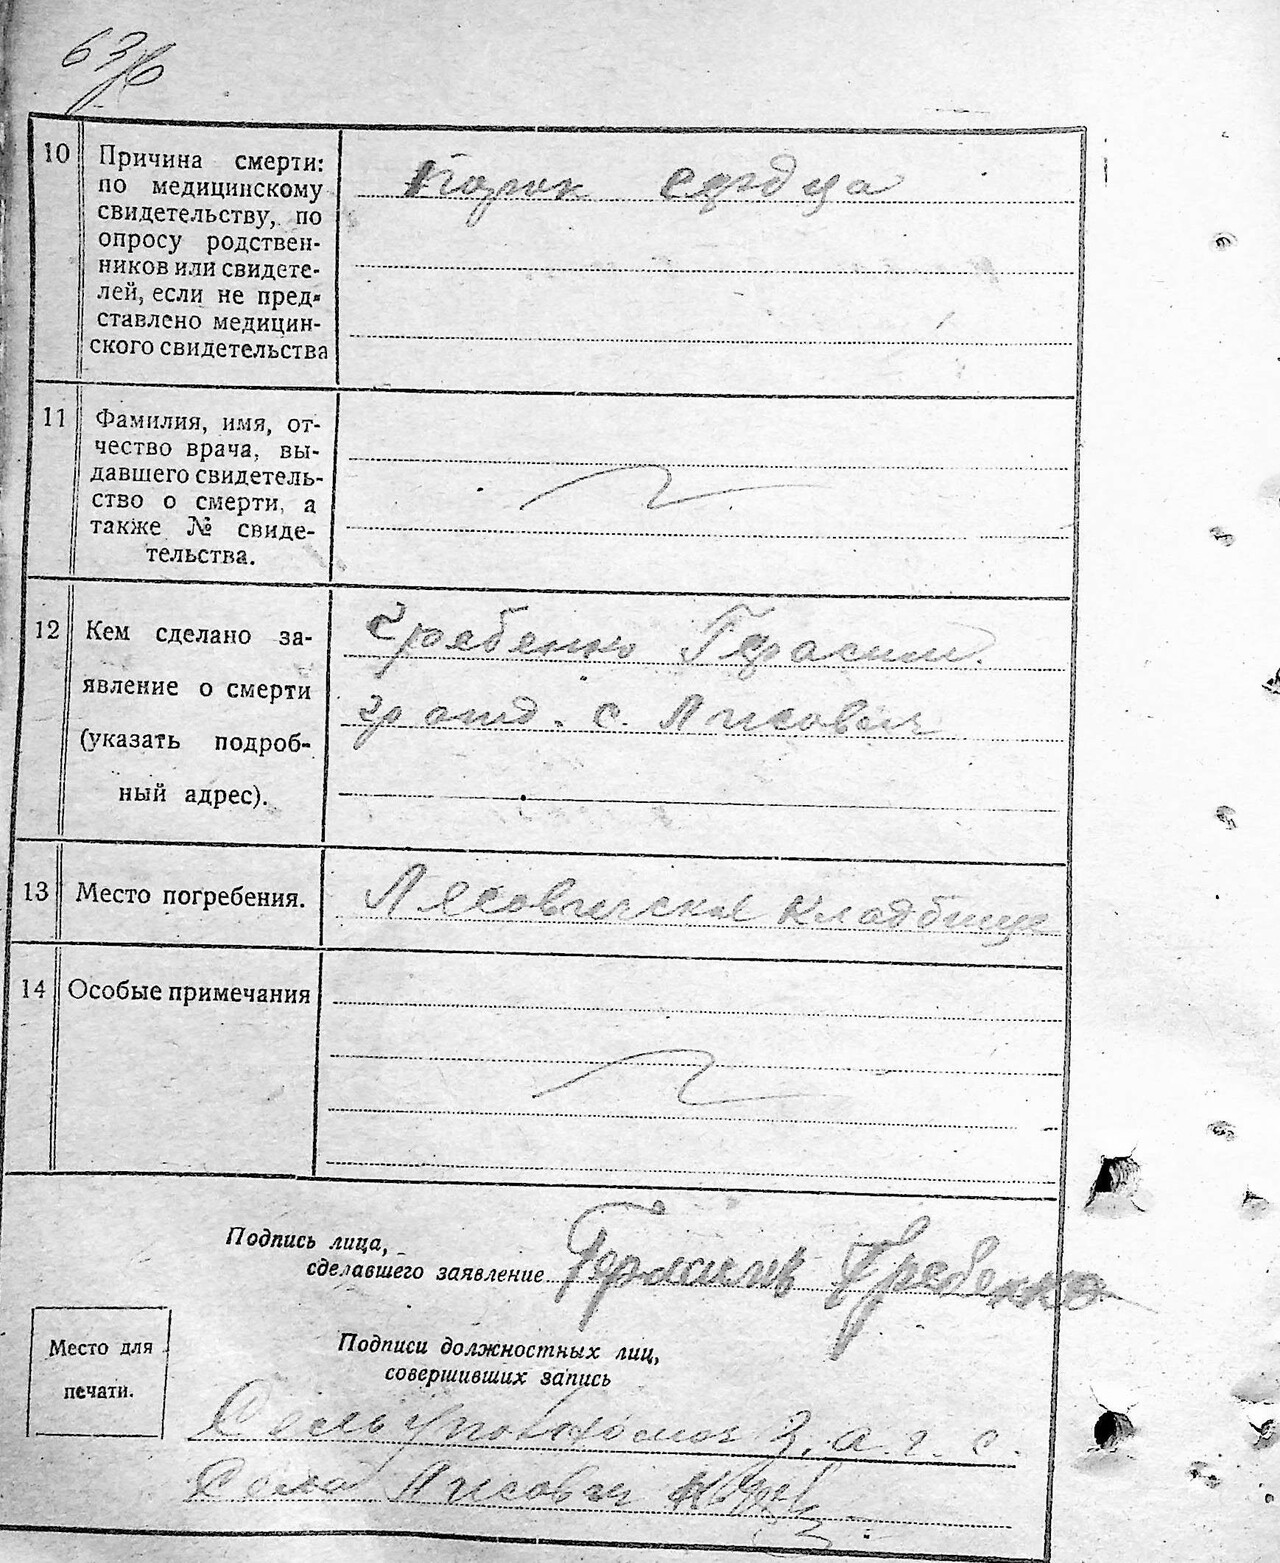 10 Причина смерти:
по медицинскому
свидетельству, по
опросу родствен-
ников или свидете-
лей, если не пред-
ставлено медицин-
ского свидетельства
Порок сердца
11 Фамилия, имя, от-
чество врача, вы-
давшего свидетель-
ство о смерти, а
также № свиде-
тельства.
12 Кем сделано за-
явление о смерти
(указать подроб-
ный адрес).
Гребенко Герасим.
с. Лисович
13 Место погребения.
кладбище
14 Особые примечания
Подпись лица,
сделавшего заявление Герасим Гребенко
Место для
печати.
Подписи должностных лиц,
совершивших запись
З. а. г. с.
Лисович